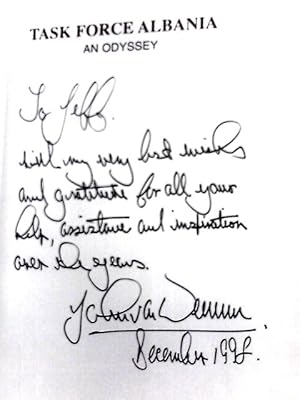 TASK FORCE ALBANIA
AN ODYSSEY
To Jeff.
with my very best wishes
and gratitude for all your
help, assistance and inspiration
over the years.
December 1998.